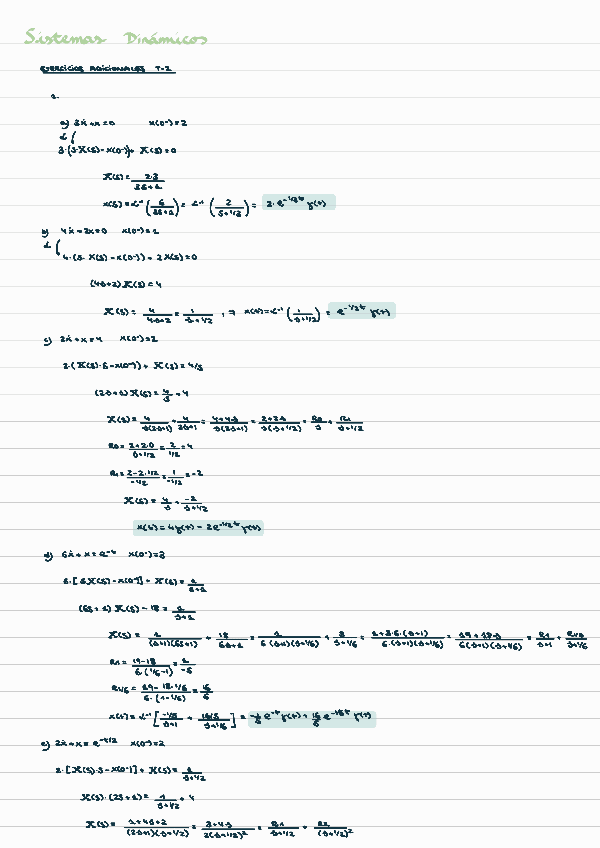 Sistemas Dinámicos
EJERCICIOS ADICIONALES T-2
1.
a) 3ẋ+x=0 x(0⁻)=2
3·(s·X(s)-x(0⁻))+X(s)=0
X(s)= 2·3/(3s+1)
x(t)=ℒ⁻¹(6/(3s+1))=ℒ⁻¹(2/(s+1/3))= 2·e^(-1/3t) γ(t)
b) 4ẋ+2x=0 x(0⁻)=1
4·(s·X(s)-x(0⁻))+2X(s)=0
(4s+2)X(s)=4
X(s)= 4/(4s+2) = 1/(s+1/2) ; ⇒ x(t)=ℒ⁻¹(1/(s+1/2)) = e^(-1/2t) γ(t)
c) 2ẋ+x=4 x(0⁻)=2
2·(X(s)·s-x(0⁻))+X(s)=4/s
(2s+1)X(s)=4/s+4
X(s)= 4/(s(2s+1)) + 4/(2s+1) = (4+4·s)/(s(2s+1)) = (2+2·s)/(s(s+1/2)) = R0/s + R1/(s+1/2)
R0= (2+2·0)/(0+1/2) = 2/(1/2) =4
R1= (2-2·1/2)/(-1/2) = 1/(-1/2) =-2
X(s)= 4/s + -2/(s+1/2)
x(t)=4γ(t)-2e^(-1/2t) γ(t)
d) 6ẋ+x=e^(-t) x(0⁻)=3
6·[s·X(s)-x(0⁻)]+X(s)= 1/(s+1)
(6s+1)X(s)-18= 1/(s+1)
X(s)= 1/((s+1)(6s+1)) + 18/(6s+1) = 1/(6·(s+1)(s+1/6)) + 3/(s+1/6) = (1+3·6·(s+1))/(6·(s+1)(s+1/6)) = (19+18·s)/(6(s+1)(s+1/6)) = R1/(s+1) + R1/6/(s+1/6)
R1= (19-18)/(6·(1/6-1)) = 1/-5
R1/6= (19-18·1/6)/(6·(1-1/6)) = 16/5
x(t)=ℒ⁻¹[(-1/5)/(s+1) + (16/5)/(s+1/6)] = -1/5 e^(-t) γ(t)+16/5 e^(-1/6t) γ(t)
e) 2ẋ+x=e^(-t/2) x(0⁻)=2
2·[X(s)·s-x(0⁻)]+X(s)= 1/(s+1/2)
X(s)·(2s+1)= 1/(s+1/2) +4
X(s)= (1+4s+2)/((2s+1)(s+1/2)) = (3+4·s)/(2(s+1/2)²) = R1/(s+1/2) + R2/(s+1/2)²